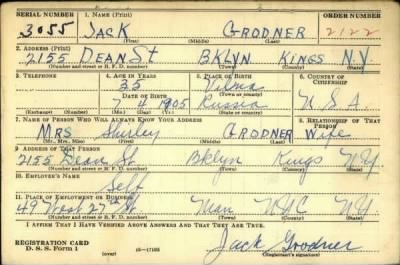 SERIAL NUMBER 1. NAME (Print) ORDER NUMBER
3055 JACK GRODNER 2122
(First) (Middle) (Last)
2. ADDRESS (Print)
2155 DEAN St BKLYN KINGS N.Y.
(Number and street or R. F. D. number) (Town) (County) (State)
3. TELEPHONE 4. AGE IN YEARS 5. PLACE OF BIRTH 6. COUNTRY OF CITIZENSHIP
35 Vilna
DATE OF BIRTH (Town or county)
7 4 1905 Russia U.S.A.
(Exchange) (Number) (Mo.) (Day) (Yr.) (State or country)
7. NAME OF PERSON WHO WILL ALWAYS KNOW YOUR ADDRESS 8. RELATIONSHIP OF THAT PERSON
Mrs Shirley GRODNER Wife
(Mr., Mrs., Miss) (First) (Middle) (Last)
9. ADDRESS OF THAT PERSON
2155 Dean St Bklyn Kings NY
(Number and street or R. F. D. number) (Town) (County) (State)
10. EMPLOYER'S NAME
Self
11. PLACE OF EMPLOYMENT OR BUSINESS
49 West 27 St Man NYC NY
(Number and street or R. F. D. number) (Town) (County) (State)
I AFFIRM THAT I HAVE VERIFIED ABOVE ANSWERS AND THAT THEY ARE TRUE.
REGISTRATION CARD
D. S. S. Form 1 Jack Grodner
(Registrant's signature)